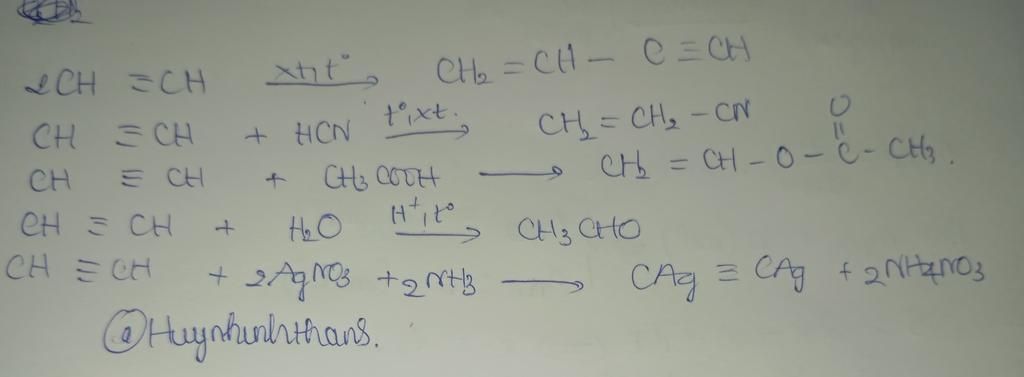 2CH ≡ CH xt,t° → CH2 = CH – C ≡ CH
CH ≡ CH + HCN t°,xt. → CH2 = CH2 – CN
CH ≡ CH + CH3COOH → CH2 = CH – O – C(=O) – CH3.
CH ≡ CH + H2O H+,t° → CH3CHO
CH ≡ CH + 2AgNO3 + 2NH3 → CAg ≡ CAg + 2NH4NO3